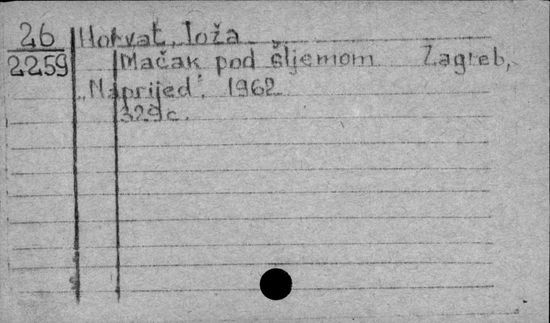 26 Horvat, Joža
2259 Mačak pod šljemom Zagreb,
„Naprijed". 1962
329 c.